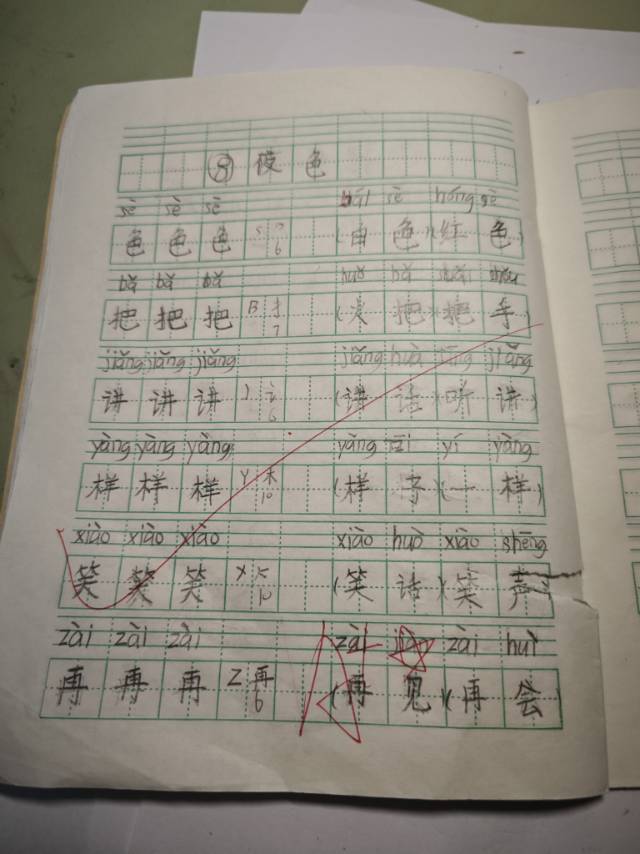 ⑨ 夜色
sè sè sè bái sè hóng sè
色 色 色 S 6 (白 色)(红 色)
bǎ bǎ bǎ huǒ bǎ shǒu
把 把 把 B 扌 7 (火 把)(把 手)
jiǎng jiǎng jiǎng jiǎng huà tīng jiǎng
讲 讲 讲 J 讠 6 (讲 话)(听 讲)
yàng yàng yàng yàng zi yí yàng
样 样 样 Y 木 10 (样 子)(一 样)
xiào xiào xiào xiào huà xiào shēng
笑 笑 笑 X 10 (笑 话)(笑 声)
zài zài zài zài zài huì
再 再 再 Z 再 6 (再 见)(再 会)